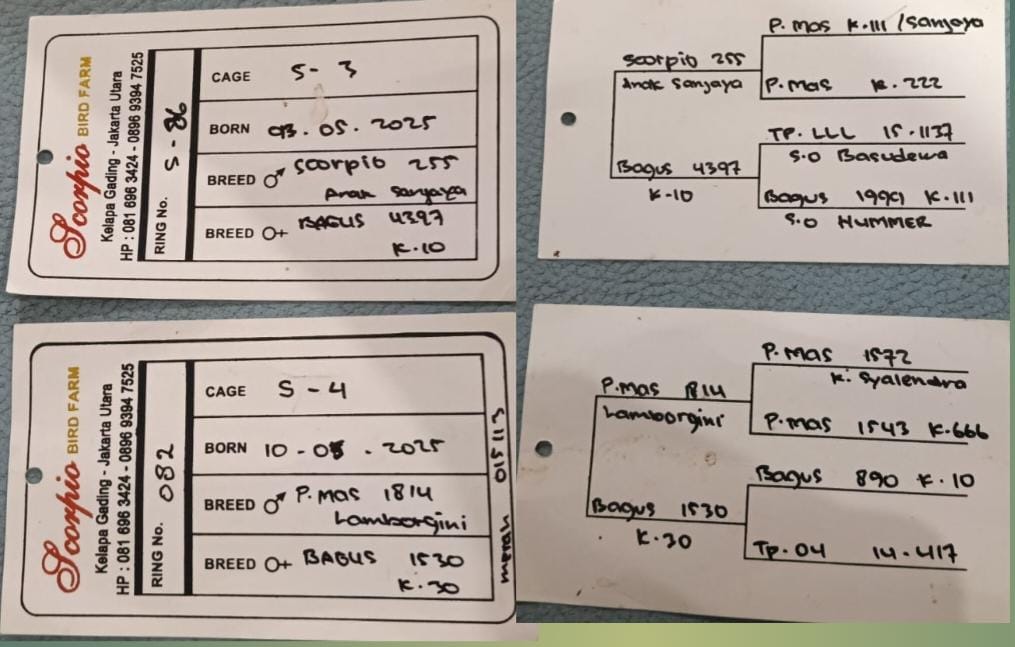 Scorpio BIRD FARM
Kelapa Gading - Jakarta Utara
HP : 081 696 3424 - 0896 9394 7525
RING No. S-86
CAGE S-3
BORN 03.05.2025
BREED ♂ Scorpio 255
Anak Sanjaya
BREED O+ BAGUS 4397
K.10
P.mas K.111 /Sanjaya
Scorpio 255
Anak Sanjaya
P.mas K.222
TP. LLL 15.1137
S.O Basudewa
Bagus 4397
K-10
Bagus 1999 K.111
S.O HUMMER
Scorpio BIRD FARM
Kelapa Gading - Jakarta Utara
HP : 081 696 3424 - 0896 9394 7525
RING No. 082
CAGE S-4
BORN 10-05.2025
BREED ♂ P.mas 1814
Lamborgini
BREED O+ BAGUS 1530
K.30
merah 015113
P.mas 1572
K. Syalendra
P.mas 1814
Lamborgini
P.mas 1543 K.666
Bagus 890 K.10
Bagus 1530
K.30
Tp.04 14.417